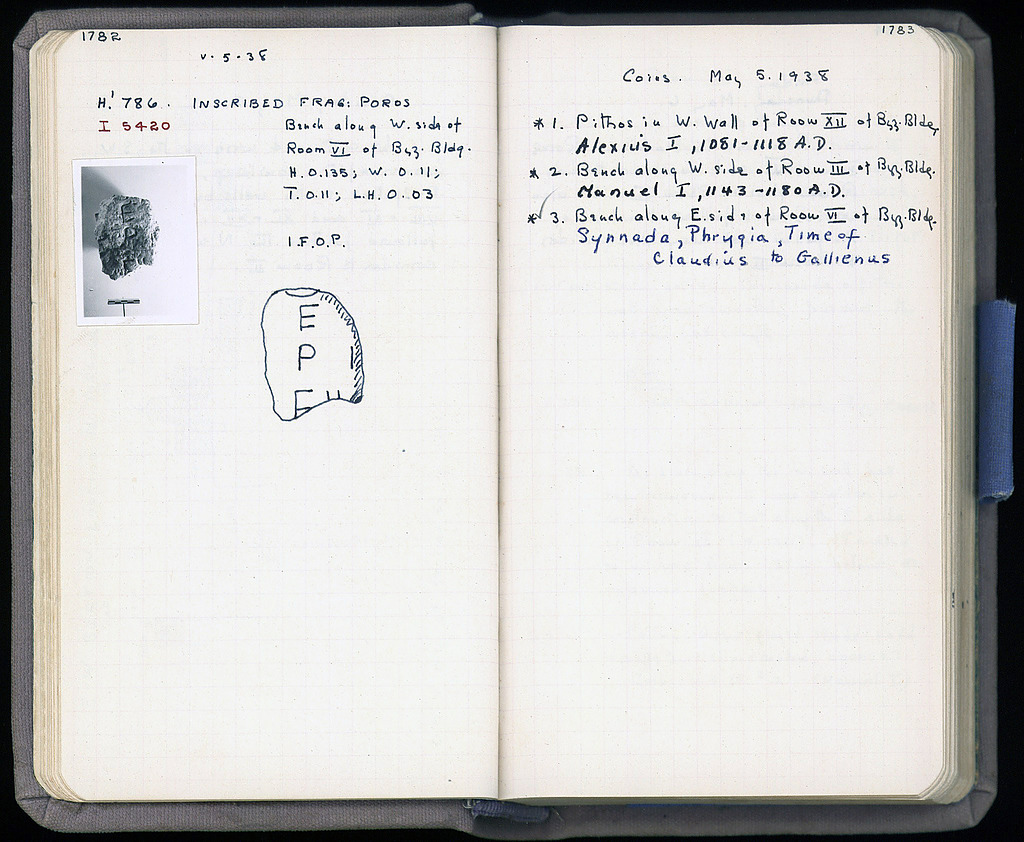 1782
V·5·38
H.' 786. INSCRIBED FRAG: POROS
I 5420
Bench along W. side of
Room VI of Byz. Bldg.
H. 0.135; W. 0.11;
T. 0.11; L.H. 0.03
I.F.O.P.
E
P I
E
1783
Coins. May 5. 1938
* 1. Pithos in W. Wall of Room XII of Byz. Bldg.
Alexius I, 1081-1118 A.D.
* 2. Bench along W. side of Room III of Byz. Bldg.
Manuel I, 1143-1180 A.D.
* 3. Bench along E. side of Room VI of Byz. Bldg.
Synnada, Phrygia, Time of
Claudius to Gallienus